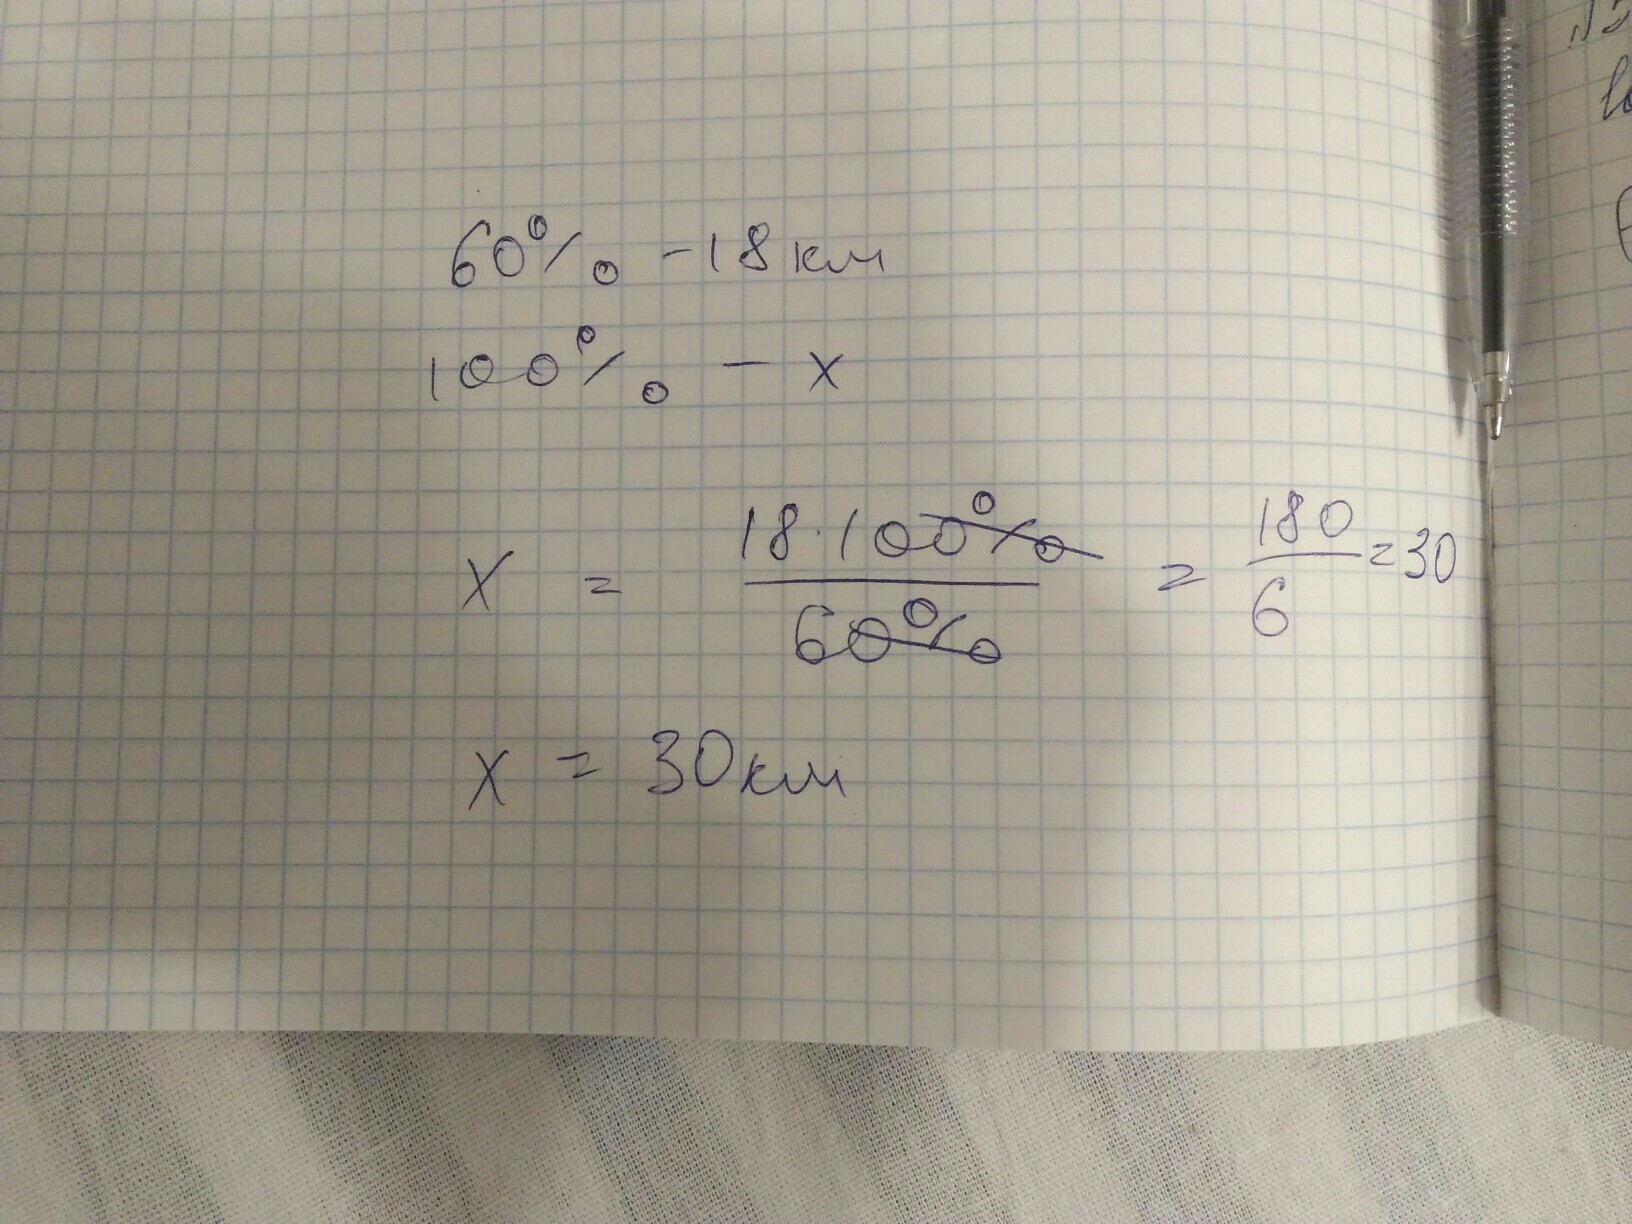 60% - 18 км
100% - x
x = 18·100% / 60% = 180 / 6 = 30
x = 30 км